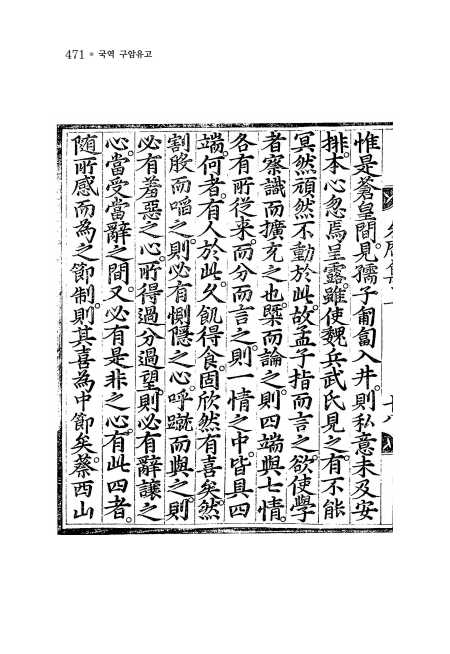 471 ● 국역 구암유고
惟是蒼皇間。見孺子匍匐入井。則私意未及安
排。本心忽焉呈露。雖使魏兵武氏見之。有不能
冥然頑然不動於此。故孟子指而言之。欲使學
者察識而擴充之也。槩而論之。則四端與七情。
各有所從來。而分而言之。則一情之中。皆具四
端。何者。有人於此。久飢得食。固欣然有喜矣。然
割股而啗之。則必有惻隱之心。呼蹴而與之。則
必有羞惡之心。所得過分過望。則必有辭讓之
心。當受當辭之間。又必有是非之心。有此四者。
隨所感而為之節制。則其喜為中節矣。蔡西山